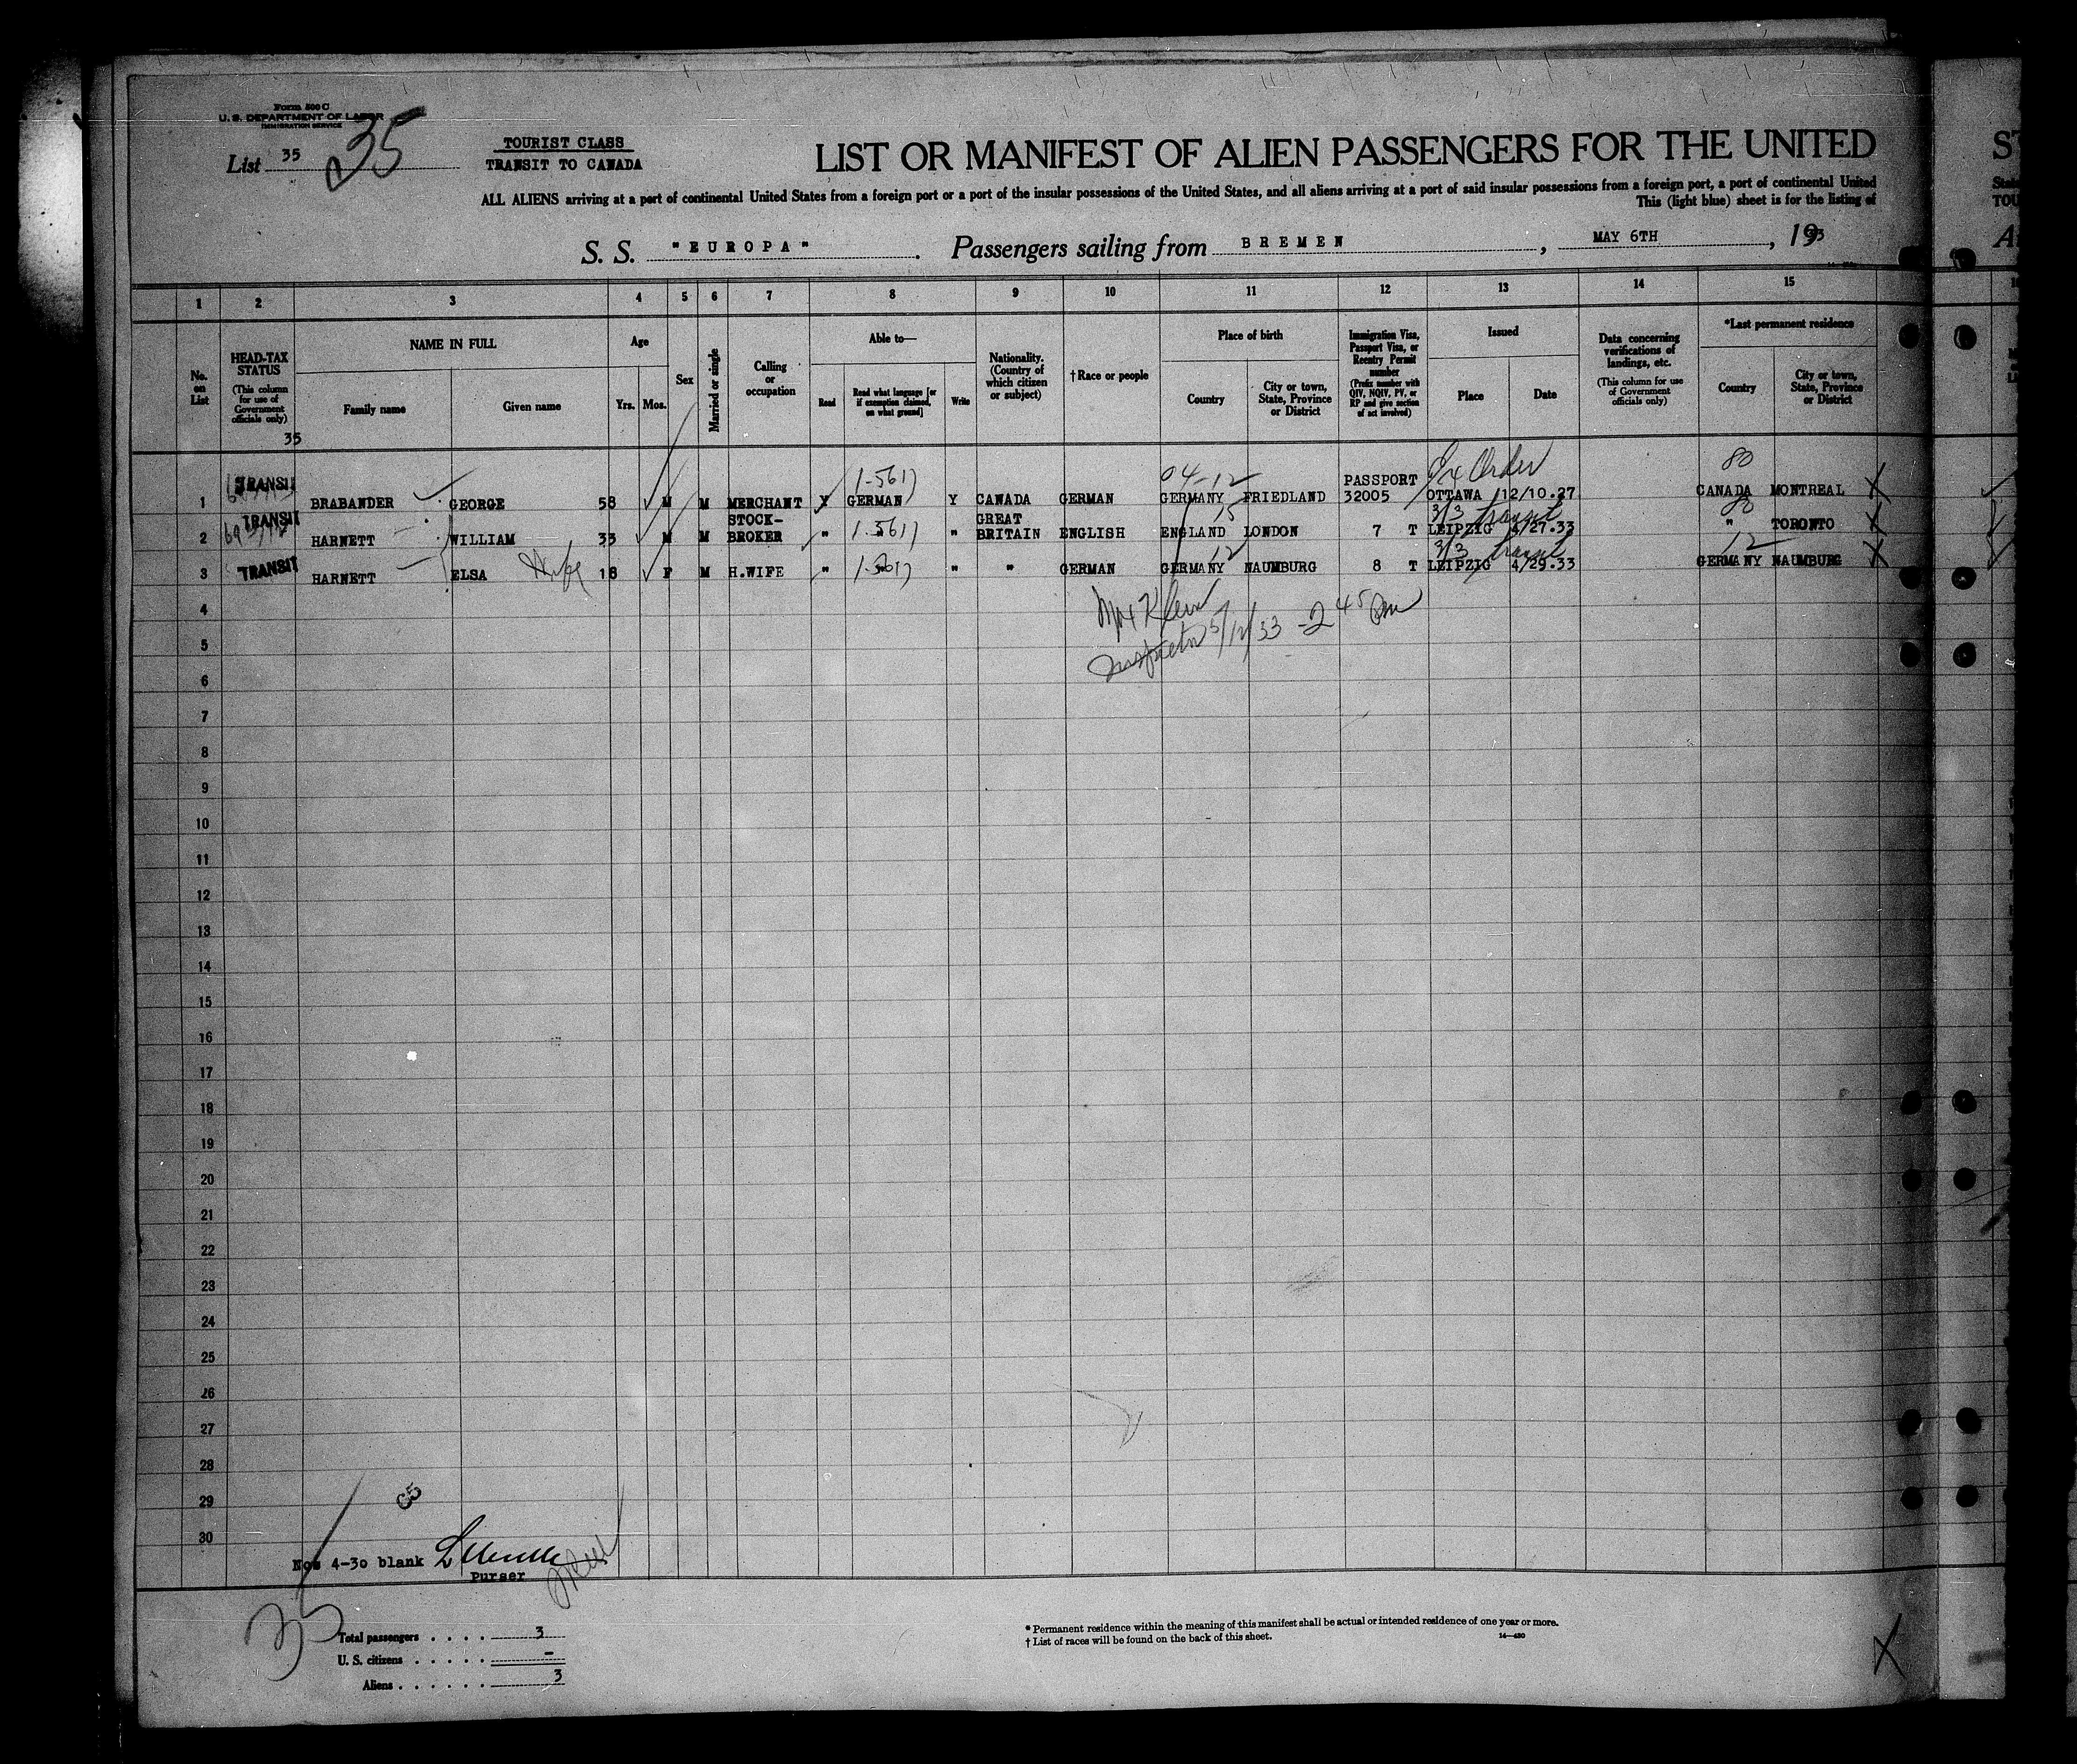 Form 500 C
U. S. DEPARTMENT OF LABOR
IMMIGRATION SERVICE
List 35 35
TOURIST CLASS
TRANSIT TO CANADA
LIST OR MANIFEST OF ALIEN PASSENGERS FOR THE UNITED
ALL ALIENS arriving at a port of continental United States from a foreign port or a port of the insular possessions of the United States, and all aliens arriving at a port of said insular possessions from a foreign port, a port of continental United
This (light blue) sheet is for the listing of
S. S. "EUROPA". Passengers sailing from BREMEN, MAY 6TH, 1933
1 2 3 4 5 6 7 8 9 10 11 12 13 14 15
No. on List
HEAD-TAX STATUS (This column for use of Government officials only)
NAME IN FULL
Family name
Given name
Age
Yrs. Mos.
Sex
Married or single
Calling or occupation
Able to—
Read
Read what language [or if exemption claimed, on what ground]
Write
Nationality. (Country of which citizen or subject)
†Race or people
Place of birth
Country
City or town, State, Province or District
Immigration Visa, Passport Visa, or Reentry Permit number (Prefix number with QIV, NQIV, PV, or RP and give section of act involved)
Issued
Place
Date
Data concerning verifications of landings, etc. (This column for use of Government officials only)
*Last permanent residence
Country
City or town, State, Province or District
35
04-12 80
1 TRANSIT BRABANDER GEORGE 58 M M MERCHANT Y GERMAN Y CANADA GERMAN GERMANY FRIEDLAND PASSPORT 32005 OTTAWA 12/10.27 CANADA MONTREAL
15 3/3 transit 80
2 TRANSIT HARNETT WILLIAM 33 M M STOCK-BROKER " " " GREAT BRITAIN ENGLISH ENGLAND LONDON 7 T LEIPZIG 4/27.33 " TORONTO
12 3/3 transit 12
3 TRANSIT HARNETT ELSA 18 F M H.WIFE " " " " GERMAN GERMANY NAUMBURG 8 T LEIPZIG 4/29.33 GERMANY NAUMBURG
4
5 Inspector 5/12/33 - 2 45 pm
6
7
8
9
10
11
12
13
14
15
16
17
18
19
20
21
22
23
24
25
26
27
28
29
30
Nos 4-30 blank
Purser
35
Total passengers . . . . 3
U. S. citizens . . . . . -
Aliens . . . . . . 3
* Permanent residence within the meaning of this manifest shall be actual or intended residence of one year or more.
† List of races will be found on the back of this sheet.
14—430